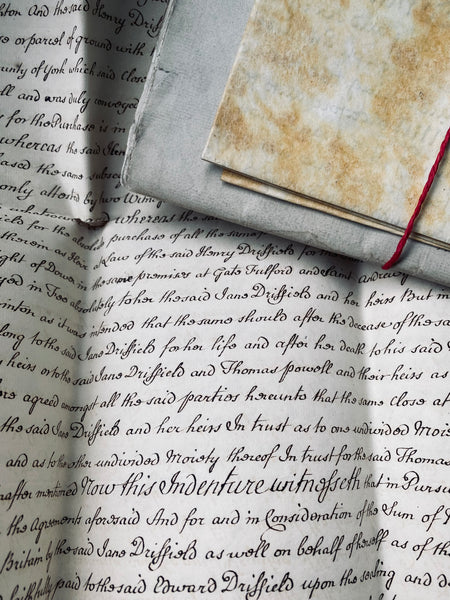 hton And the said Henry Driffield
se or parcel of ground with
ounty of York which said Close
ll and was duly conveyed
s for the Purchase is m
whereas the said Hen
ased the same subse
only attested by two Witn
field for the whereas the
thereof as Heir at Law of the said Henry Driffield for
ight of Dower in the same premises at Gate Fulford and Saint Andrew
yed in Fee absolutely to her the said Jane Driffield and her heirs But
inton as it was intended that the same should after the decease of the sa
long to the said Jane Driffield for her life and after her death to his said
heirs or to the said Jane Driffield and Thomas Powell and their heirs as
re agreed amongst all the said parties hereunto that the same Close at
the said Jane Driffield and her heirs In trust as to one undivided Moie
and as to the other undivided Moiety thereof In trust for the said Thomas
nafter mentioned Now this Indenture witnesseth that in Pursu
the Agreements aforesaid And for and in Consideration of the Sum of
Britain by the said Jane Driffield as well on behalf of herself as of th
faithfully paid to the said Edward Driffield upon the sealing and de